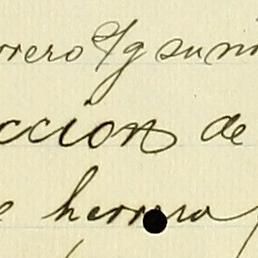 rrero Yg suni
ccion de
e herrera y